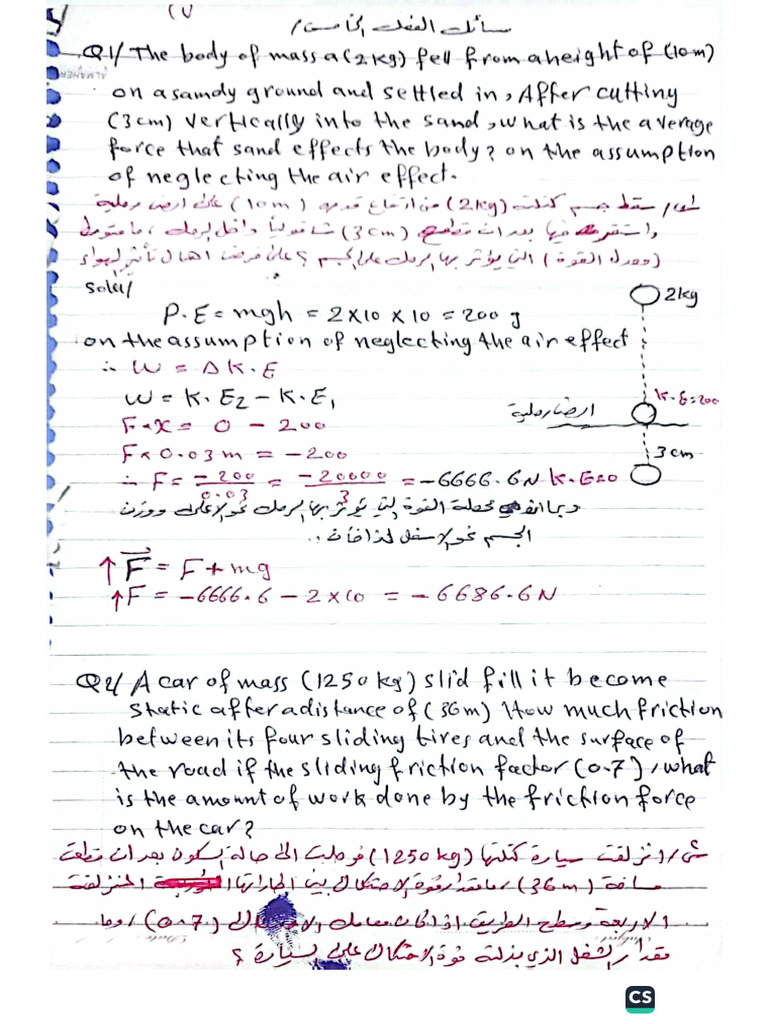 (١)
مسائل الفصل الخامس /
Q1/ The body of mass a (2kg) fell from a height of (10m)
on a samdy ground and settled in, After cutting
(3cm) vertically into the sand, what is the average
force that sand effects the body? on the assumption
of neglecting the air effect.
سقط جسم كتلته (2kg) من ارتفاع قدره (10m) على ارض رملية
واستقر فيها بعد ان قطع (3cm) شاقولياً داخل الرمل، ما متوسط
(معدل القوة) التي يؤثر بها الرمل على الجسم؟ على فرض اهمال تأثير الهواء
Solu/
2kg
P.E = mgh = 2×10×10 = 200 J
on the assumption of neglecting the air effect
∴ W = Δ K.E
W = K.E2 - K.E1
K.E=200
ارض رملية
F×X = 0 - 200
F×0.03m = -200
3cm
∴ F = -200/0.03 = -20000/3 = -6666.6N
K.E=0
وبما ان محصلة القوة التي تؤثر بها الرمل نحو الاعلى ووزن
الجسم نحو الاسفل لذا فأن ..
↑F = F + mg
↑F = -6666.6 - 2×10 = -6686.6N
Q2/ A car of mass (1250 kg) slid fill it become
static after a distance of (36m) How much friction
between its four sliding tires and the surface of
the road if the sliding friction factor (0.7), what
is the amount of work done by the friction force
on the car?
س/ انزلقت سيارة كتلتها (1250 kg) فوصلت الى حالة السكون بعد ان قطعت
مسافة (36m) / ما مقدار قوة الاحتكاك بين اطاراتها المنزلقة
الاربعة وسطح الطريق اذا كان معامل الانزلاقي (0.7) / وما
مقدار الشغل الذي بذلته قوة الاحتكاك على السيارة ؟
CS